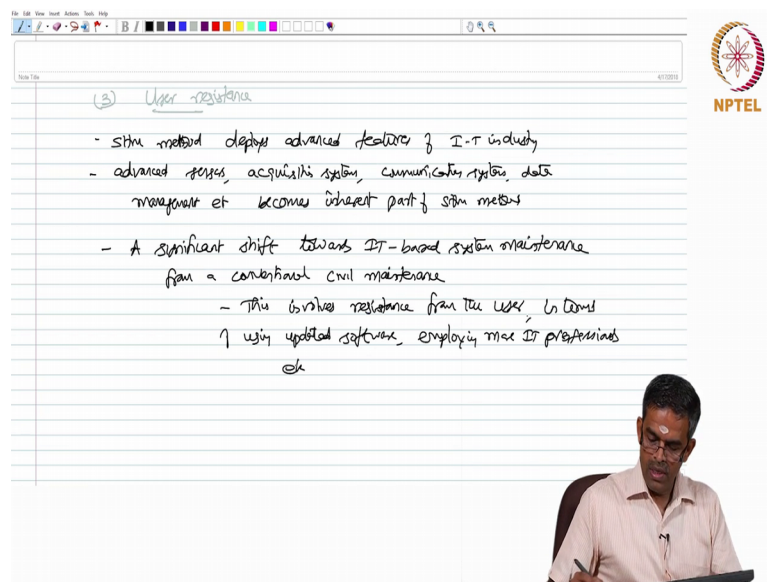 File Edit View Insert Actions Tools Help
B I
Note Title
4/17/2018
NPTEL
(3) User resistance
- SHM method deploys advanced features of I-T industry
- advanced sensors, acquisition system, communication system, data
management etc becomes inherent part of SHM methods
- A significant shift towards IT-based system maintenance
from a conventional civil maintenance
- This involves resistance from the user, in terms
of using updated software, employing more IT professionals
etc